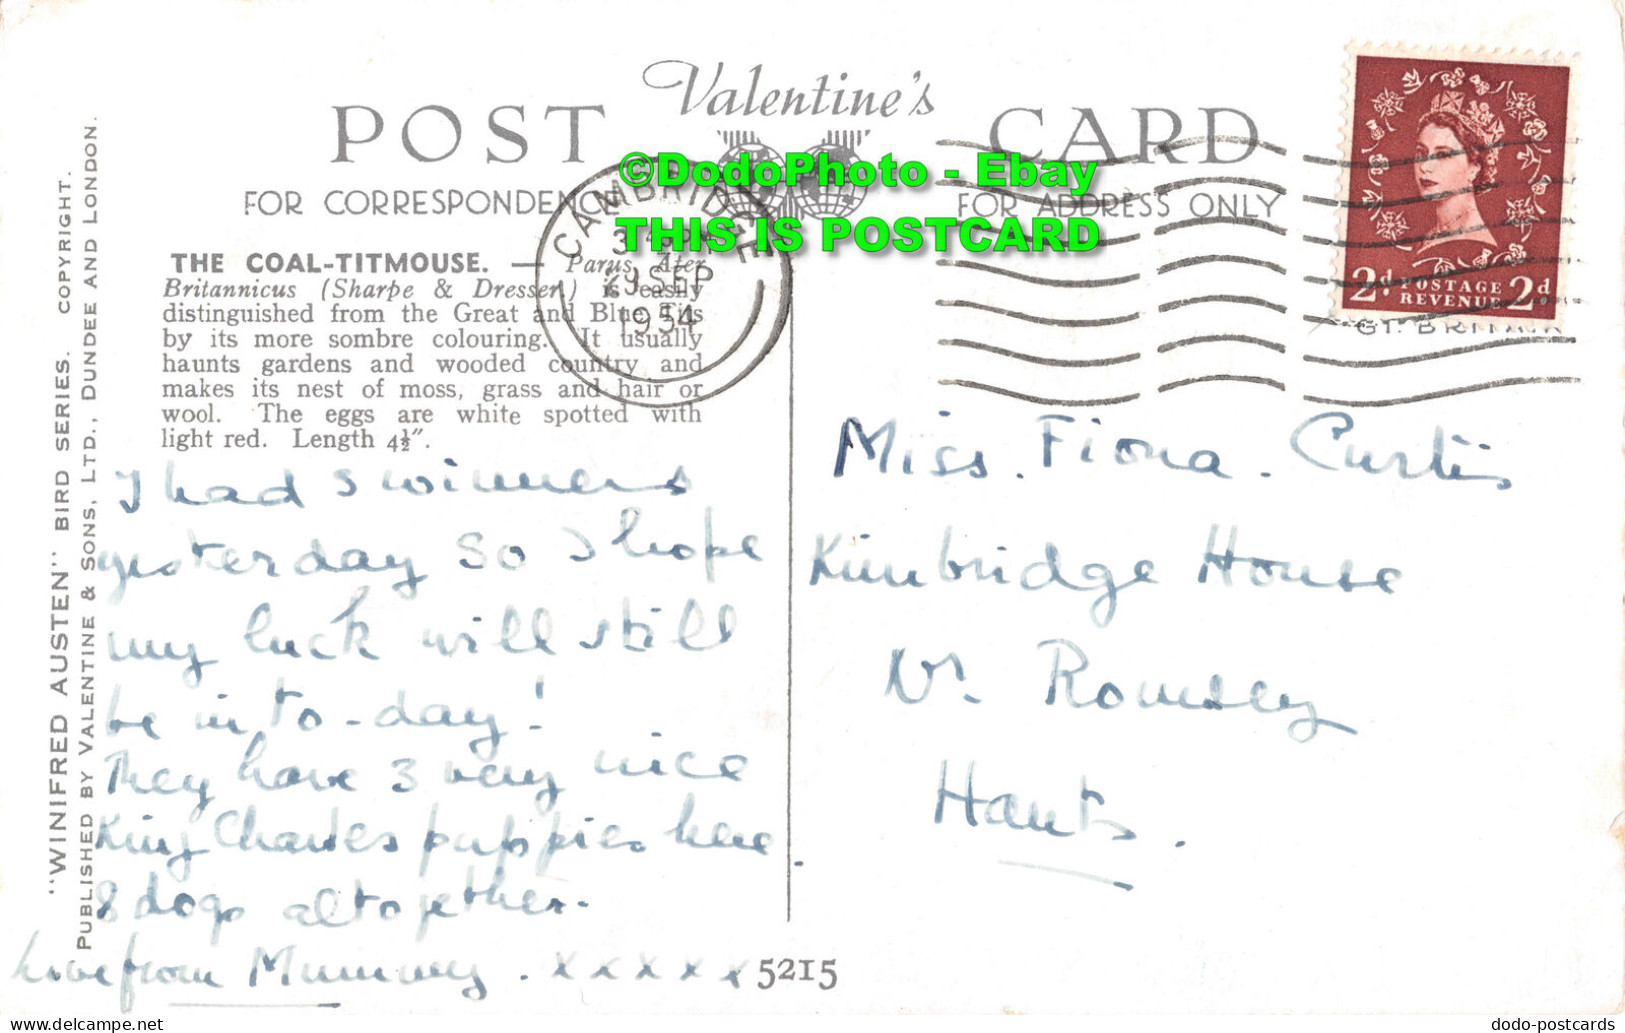 POST Valentine's CARD
FOR CORRESPONDENCE FOR ADDRESS ONLY
©DodoPhoto - Ebay
THIS IS POSTCARD
CAMBRIDGE
29 SEP
1954
2d. POSTAGE REVENUE 2d
THE COAL-TITMOUSE. — Parus Ater
Britannicus (Sharpe & Dresser) is easily
distinguished from the Great and Blue Tits
by its more sombre colouring. It usually
haunts gardens and wooded country and
makes its nest of moss, grass and hair or
wool. The eggs are white spotted with
light red. Length 4½".
"WINIFRED AUSTEN" BIRD SERIES. COPYRIGHT.
PUBLISHED BY VALENTINE & SONS, LTD., DUNDEE AND LONDON.
I had 3 winners
yesterday so I hope
my luck will still
be in to-day!
They have 3 very nice
King Charles puppies here.
8 dogs altogether.
Love from Mummy. x x x x x
Miss. Fiona. Curtis
Kimbridge House
Nr. Romsey
Hants.
5215
dodo-postcards